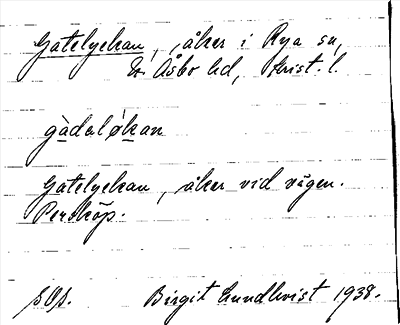 Gatelyckan, åker i Rya sn,
N. Åsbo hd, Krist. l.
gàdəløkan
Gatelyckan, åker vid vägen.
Perstorp.
Birgit Lundkvist 1938.